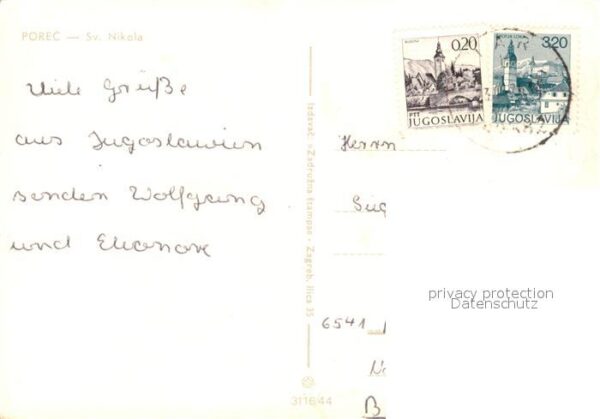 POREČ — Sv. Nikola
Viele Grüße
aus Jugoslawien
senden Wolfgang
und Eleonore
Izdavač: »Zadružna štampa« - Zagreb, Ilica 35
3116/44
0,20
PTT
JUGOSLAVIJA
3,20
JUGOSLAVIJA
Herrn
6541
B
privacy protection
Datenschutz